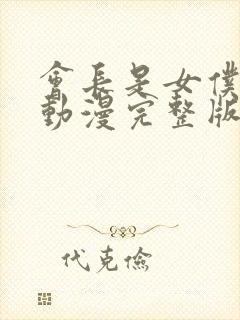 會長是女僕
動漫完整版
代克儉